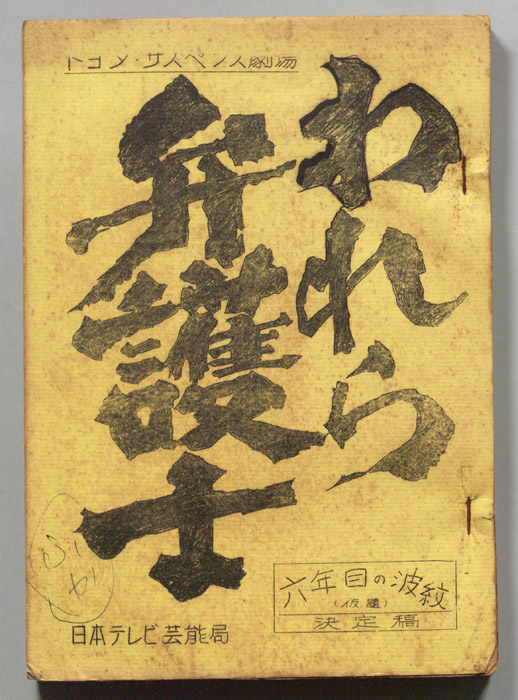 トヨタ・サスペンス劇場
われら
弁護士
六年目の波紋
(仮題)
決定稿
日本テレビ芸能局